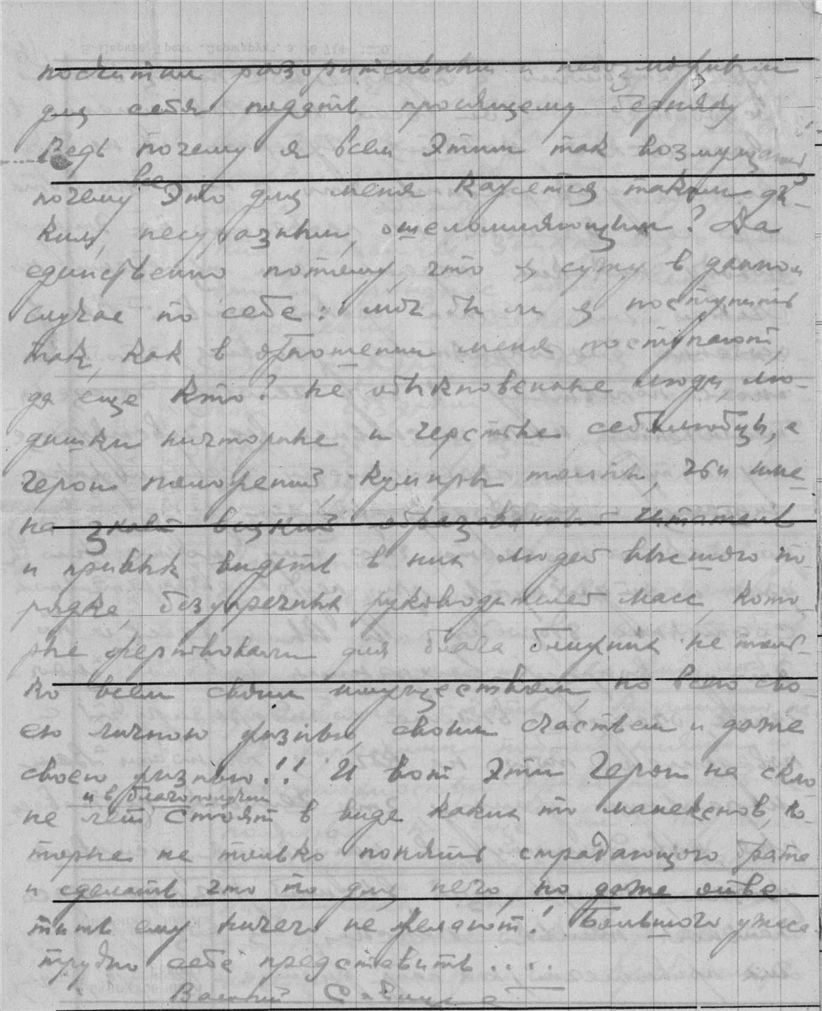 посчитали разорительным и невозможным
для себя подать просящему бедняку
Ведь почему я всем этим так возмущаюсь
почему все это для меня кажется таким ди-
ким, несуразным, ошеломляющим? Да
единственно потому, что я сужу в данном
случае по себе: мог бы ли я поступить
так, как в отношении меня поступают,
да еще кто? не обыкновенные люди, лю-
дишки ничтожные и черствые себялюбцы, а
герои
кумиры толпы, чьи име-
на знает всякий образованный читатель
и привык видеть в них людей высшего по
рядка, безупречных руководителей масс, кото-
рые жертвовали для блага ближних не толь-
ко всем своим имуществом, но всею сво-
ею личною жизнью, своим счастьем и даже
своею жизнью!! И вот эти герои на скло
не лет и в благополучии стоят в виде каких то манекенов, ко-
торые не только понять страдающего брата
и сделать что то для него, но даже отве-
тить ему ничего не желают! Большого ужаса
трудно себе представить....